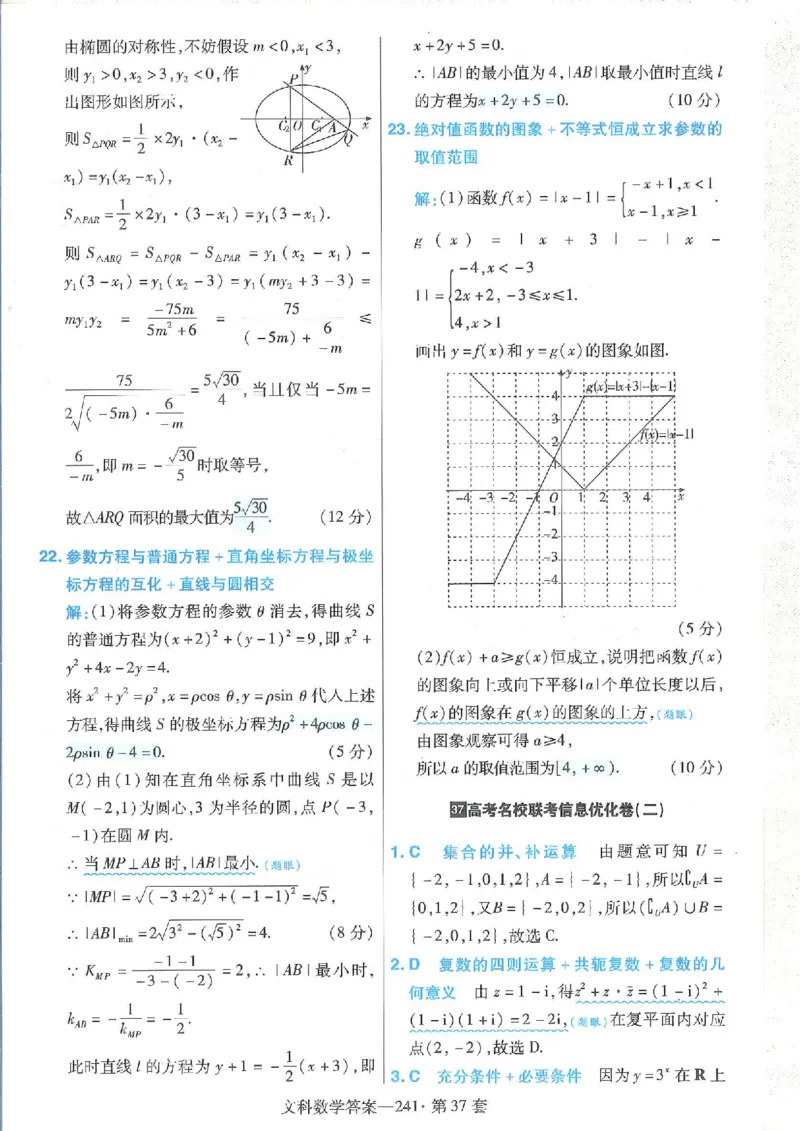 由椭圆的对称性,不妨假设 m<0,x₁<3,
则 y₁>0,x₂>3,y₂<0,作
出图形如图所示,
则 S△PQR = 1/2 ×2y₁·(x₂-
x₁)=y₁(x₂-x₁),
P
y
C₂ O C₁ A x
Q
R
S△PAR = 1/2 ×2y₁·(3-x₁)=y₁(3-x₁).
则 S△ARQ = S△PQR - S△PAR = y₁(x₂-x₁)-
y₁(3-x₁)=y₁(x₂-3)=y₁(my₂+3-3)=
my₁y₂ = -75m/(5m²+6) = 75/((-5m)+6/(-m)) ≤
75/(2√((-5m)·6/(-m))) = 5√30/4,当且仅当-5m=
6/(-m),即 m=-√30/5时取等号,
故△ARQ 面积的最大值为5√30/4. (12 分)
22. 参数方程与普通方程+直角坐标方程与极坐
标方程的互化+直线与圆相交
解:(1)将参数方程的参数 θ 消去,得曲线 S
的普通方程为(x+2)²+(y-1)²=9,即 x²+
y²+4x-2y=4.
将 x²+y²=ρ²,x=ρcos θ,y=ρsin θ 代入上述
方程,得曲线 S 的极坐标方程为ρ²+4ρcos θ-
2ρsin θ-4=0. (5 分)
(2)由(1)知在直角坐标系中曲线 S 是以
M(-2,1)为圆心,3 为半径的圆,点 P(-3,
-1)在圆 M 内.
∴当 MP⊥AB 时,|AB|最小.(题眼)
∵|MP|=√((-3+2)²+(-1-1)²)=√5,
∴|AB|min=2√(3²-(√5)²)=4. (8 分)
∵K_MP = (-1-1)/(-3-(-2)) =2,∴|AB|最小时,
k_AB = -1/k_MP = -1/2.
此时直线 l 的方程为 y+1=-1/2(x+3),即
x+2y+5=0.
∴|AB|的最小值为 4,|AB|取最小值时直线 l
的方程为x+2y+5=0. (10 分)
23. 绝对值函数的图象+不等式恒成立求参数的
取值范围
解:(1)函数f(x)=|x-1|={-x+1,x<1
x-1,x≥1.
g(x)=|x+3|-|x-
1|={-4,x<-3
2x+2,-3≤x≤1.
4,x>1
画出 y=f(x)和 y=g(x)的图象如图.
y
g(x)=|x+3|-|x-1|
4
3
f(x)=|x-1|
2
1
-4 -3 -2 -1 O 1 2 3 4 x
-1
-2
-3
-4
(5 分)
(2)f(x)+a≥g(x)恒成立,说明把函数f(x)
的图象向上或向下平移|a|个单位长度以后,
f(x)的图象在 g(x)的图象的上方,(题眼)
由图象观察可得 a≥4,
所以 a 的取值范围为[4,+∞). (10 分)
37高考名校联考信息优化卷(二)
1. C 集合的并、补运算 由题意可知 U=
{-2,-1,0,1,2},A={-2,-1},所以∁UA=
{0,1,2},又B={-2,0,2},所以(∁UA)∪B=
{-2,0,1,2},故选 C.
2. D 复数的四则运算+共轭复数+复数的几
何意义 由 z=1-i,得z²+z·z̄=(1-i)²+
(1-i)(1+i)=2-2i,(题眼)在复平面内对应
点(2,-2),故选 D.
3. C 充分条件+必要条件 因为 y=3ˣ 在 R 上
文科数学答案—241·第 37 套